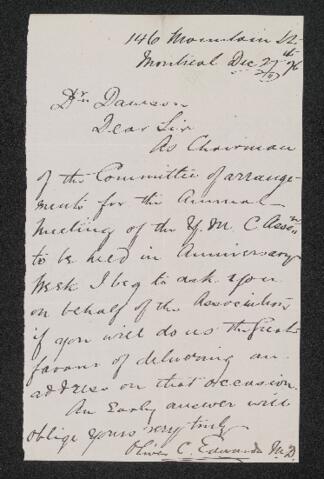 146 Mountain St
Montreal Dec 27th /76
Dr. Dawson
Dear Sir
As Chairman
of the Committee of arrange-
ments for the Annual
Meeting of the Y. M. C Assn
to be held in Anniversary
Week I beg to ask you
on behalf of the Association
if you will do us the great
favour of delivering an
address on that occasion.
An Early answer will
oblige yours very truly
Oliver C. Edwards M.D.